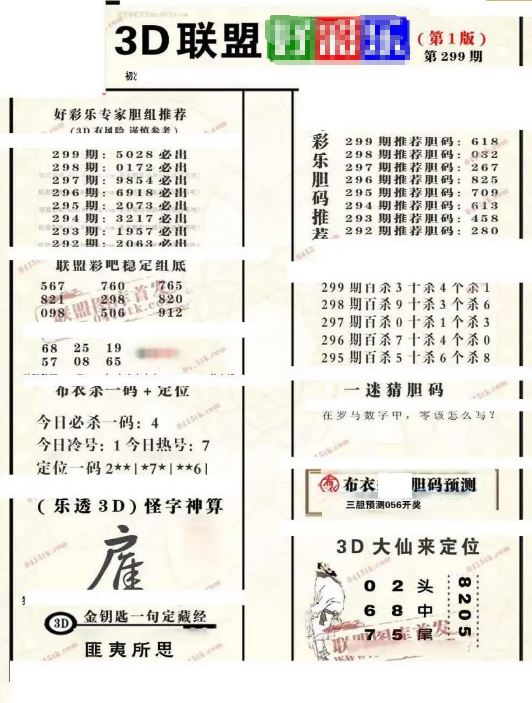 3D联盟
(第1版)
第299期
好彩乐专家胆组推荐
(3D有风险 谨慎参考)
299期: 5028必出
298期: 0172必出
297期: 9854必出
296期: 6918必出
295期: 2073必出
294期: 3217必出
293期: 1957必出
292期: 2063必出
联盟彩吧稳定组底
567 760 765
821 298 820
098 506 912
68 25 19
57 08 65
布衣杀一码+定位
今日必杀一码: 4
今日冷号: 1 今日热号: 7
定位一码 2**|*7*|**6|
(乐透3D) 怪字神算
3D 金钥匙一句定藏经
匪夷所思
彩乐胆码推荐
299期推荐胆码: 618
298期推荐胆码: 032
297期推荐胆码: 267
296期推荐胆码: 825
295期推荐胆码: 709
294期推荐胆码: 613
293期推荐胆码: 458
292期推荐胆码: 280
299期百杀3十杀4个杀1
298期百杀9十杀3个杀6
297期百杀0十杀1个杀3
296期百杀7十杀4个杀0
295期百杀5十杀6个杀8
一迷猜胆码
在罗马数字中, 零该怎么写?
布衣 胆码预测
三胆预测056开奖
3D大仙来定位
0 2 头
6 8 中
7 5 尾
8205
联盟图库首发
0415tk.com